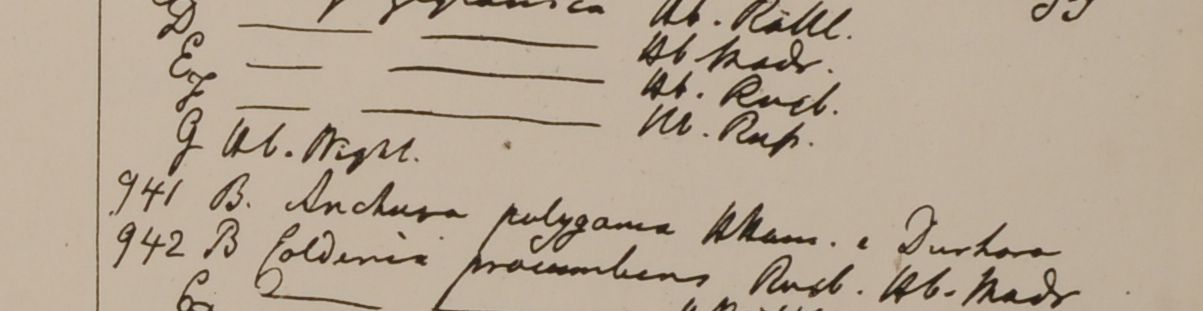 D ——— ——— Hb. Röttl.
E ——— ——— Hb Madr.
F ——— ——— Hb. Roxb.
G Hb. Wight. Hb. Rup.
941 B. Anchusa polygama HHam. e Durhora
942 B Coldenia procumbens Roxb. Hb. Madr